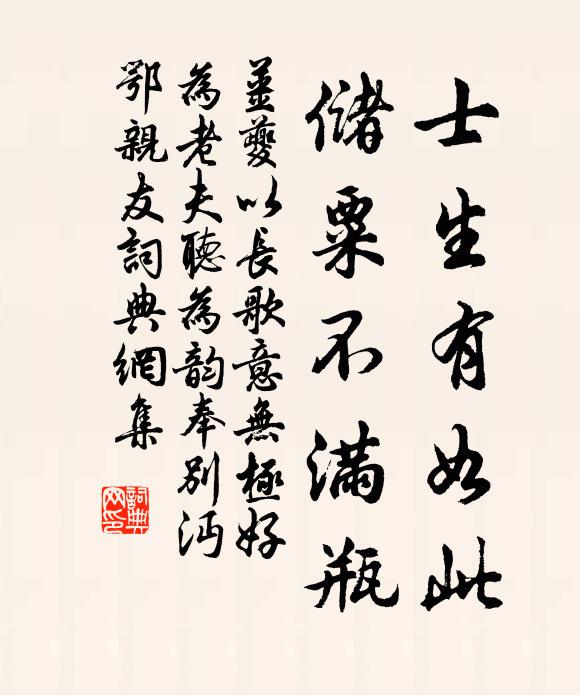 士生有如此
儲粟不滿瓶
姜夔以長歌意無極好
為老夫聽為韵奉別沔
鄂親友詞典網集
詞典
网印